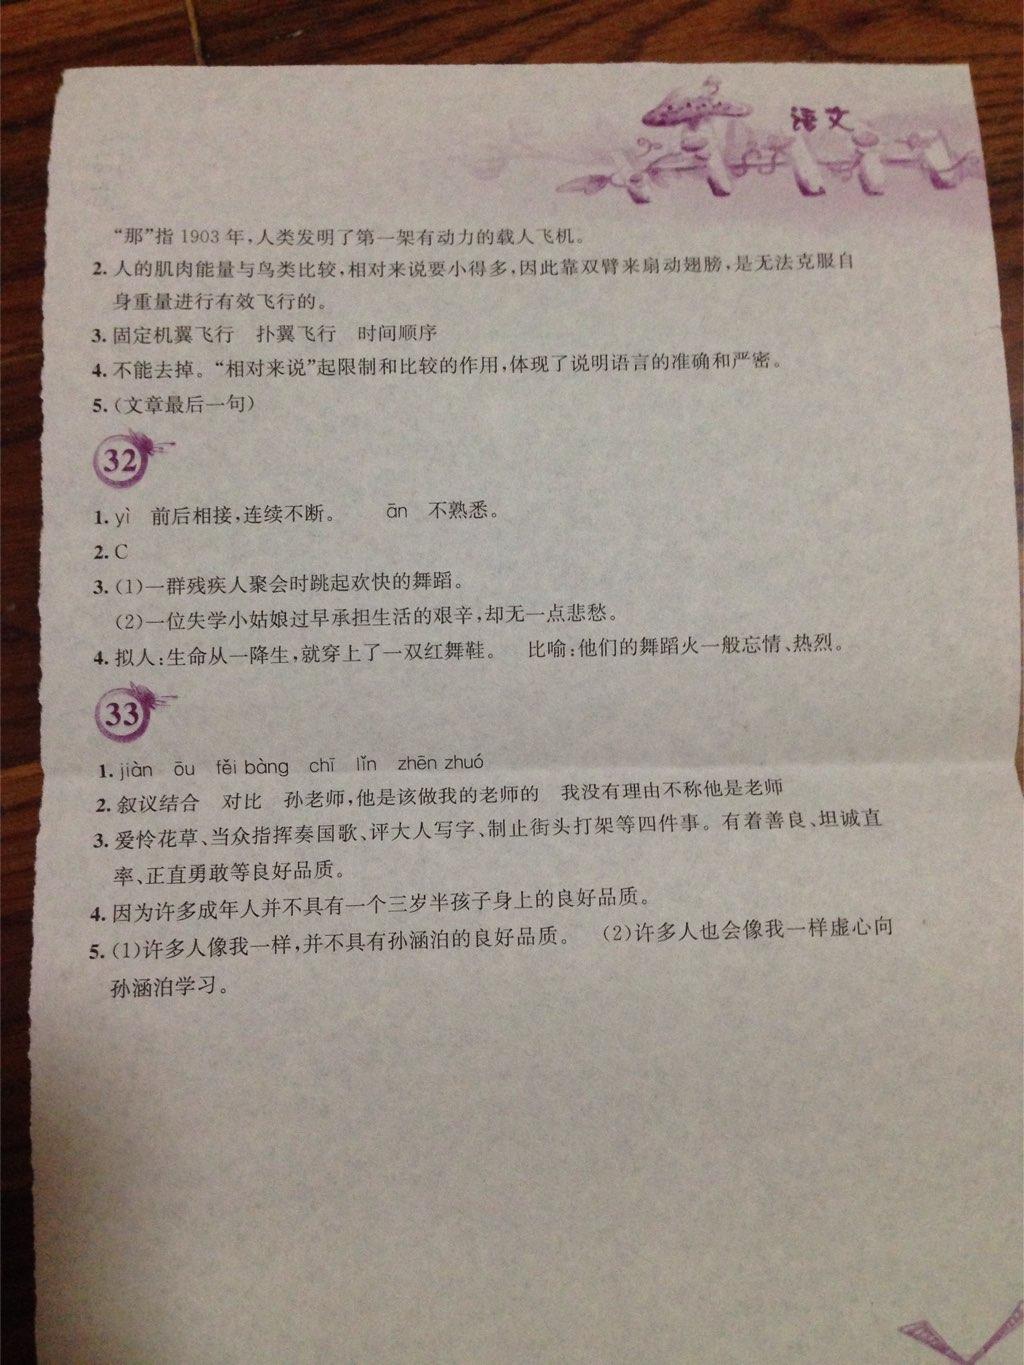 语文
“那”指 1903 年,人类发明了第一架有动力的载人飞机。
2. 人的肌肉能量与鸟类比较,相对来说要小得多,因此靠双臂来扇动翅膀,是无法克服自
身重量进行有效飞行的。
3. 固定机翼飞行 扑翼飞行 时间顺序
4. 不能去掉。“相对来说”起限制和比较的作用,体现了说明语言的准确和严密。
5. (文章最后一句)
32
1. yì 前后相接,连续不断。 ān 不熟悉。
2. C
3. (1)一群残疾人聚会时跳起欢快的舞蹈。
(2)一位失学小姑娘过早承担生活的艰辛,却无一点悲愁。
4. 拟人:生命从一降生,就穿上了一双红舞鞋。 比喻:他们的舞蹈火一般忘情、热烈。
33
1. jiàn ōu fěi bàng chī lǐn zhēn zhuó
2. 叙议结合 对比 孙老师,他是该做我的老师的 我没有理由不称他是老师
3. 爱怜花草、当众指挥奏国歌、评大人写字、制止街头打架等四件事。有着善良、坦诚直
率、正直勇敢等良好品质。
4. 因为许多成年人并不具有一个三岁半孩子身上的良好品质。
5. (1)许多人像我一样,并不具有孙涵泊的良好品质。 (2)许多人也会像我一样虚心向
孙涵泊学习。